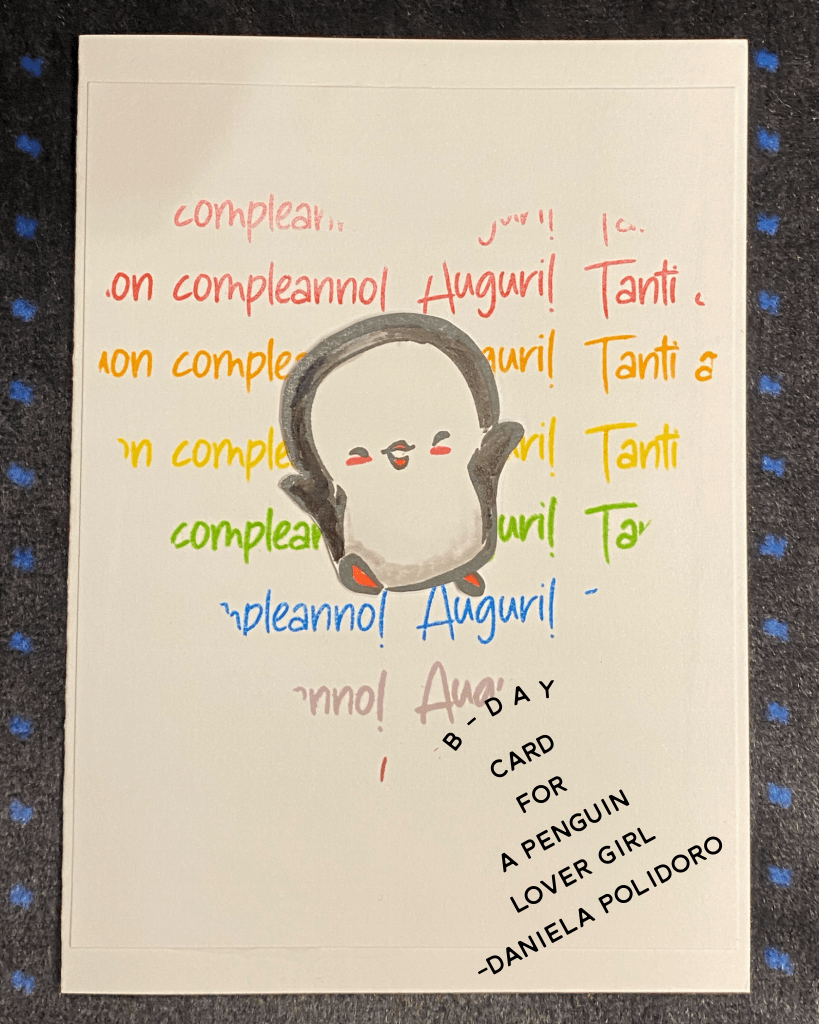 complean
on compleanno! Auguri! Tanti
on comple uri! Tanti a
on comple ri! Tanti
complean uri! Ta
pleanno! Auguri!
nno! Aug
B-DAY
CARD
FOR
A PENGUIN
LOVER GIRL
-DANIELA POLIDORO